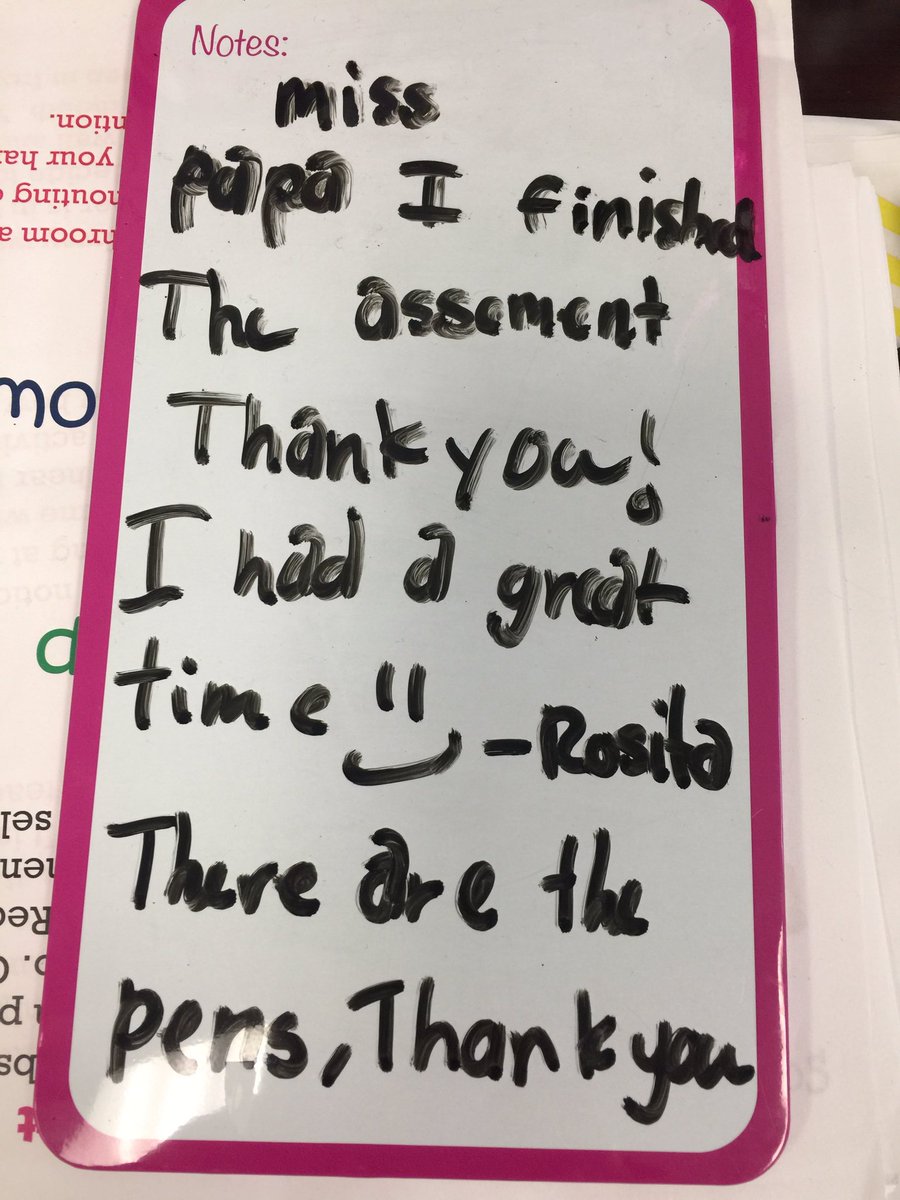 Notes:
miss
papa I finished
The assement
Thank you!
I had a great
time
-Rosita
There are the
pens, Thank you